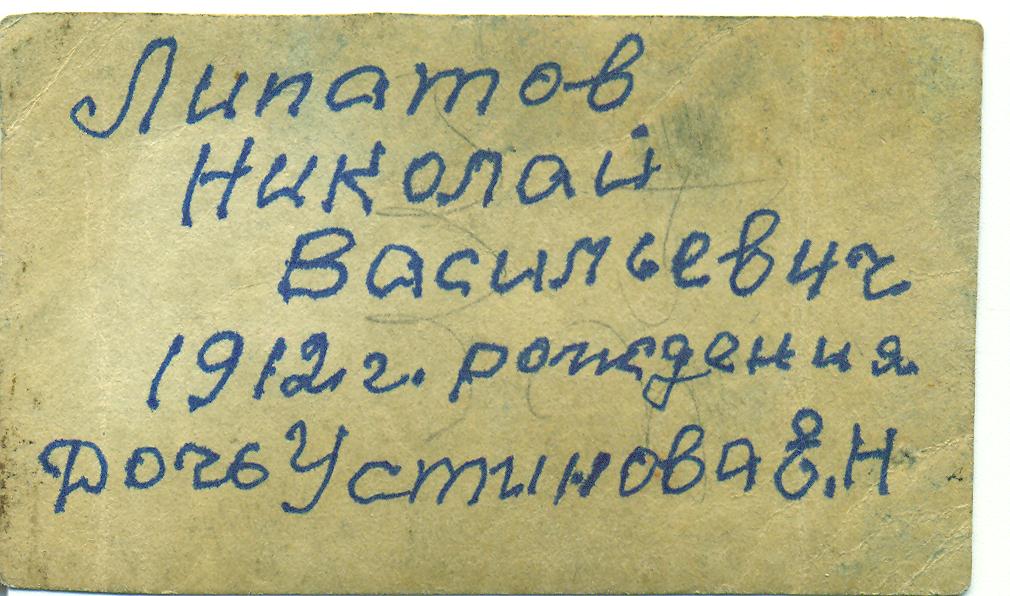 Липатов
Николай
Васильевич
1912 г. рождения
Дочь Устинова Е.Н